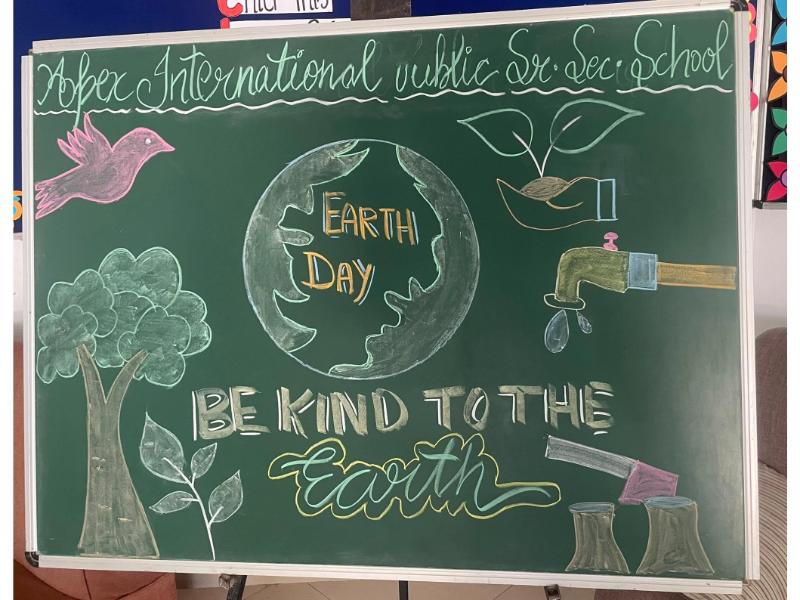 Apex International public Sr. Sec. School
EARTH
DAY
BE KIND TO THE
Earth